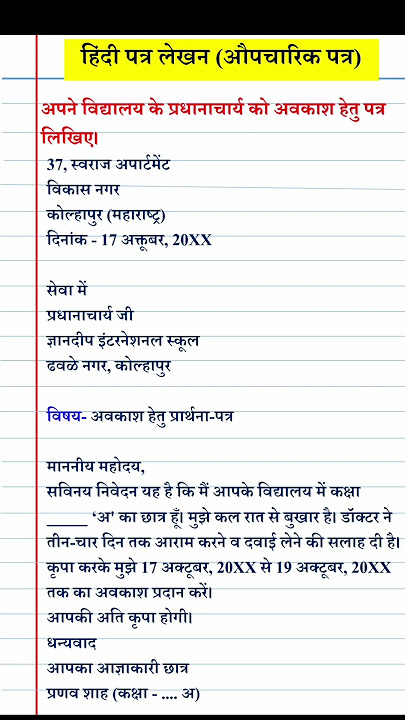 हिंदी पत्र लेखन (औपचारिक पत्र)
अपने विद्यालय के प्रधानाचार्य को अवकाश हेतु पत्र
लिखिए।
37, स्वराज अपार्टमेंट
विकास नगर
कोल्हापुर (महाराष्ट्र)
दिनांक - 17 अक्तूबर, 20XX
सेवा में
प्रधानाचार्य जी
ज्ञानदीप इंटरनेशनल स्कूल
ढवळे नगर, कोल्हापुर
विषय- अवकाश हेतु प्रार्थना-पत्र
माननीय महोदय,
सविनय निवेदन यह है कि मैं आपके विद्यालय में कक्षा
_____ ‘अ' का छात्र हूँ। मुझे कल रात से बुखार है। डॉक्टर ने
तीन-चार दिन तक आराम करने व दवाई लेने की सलाह दी है।
कृपा करके मुझे 17 अक्टूबर, 20XX से 19 अक्टूबर, 20XX
तक का अवकाश प्रदान करें।
आपकी अति कृपा होगी।
धन्यवाद
आपका आज्ञाकारी छात्र
प्रणव शाह (कक्षा - .... अ)